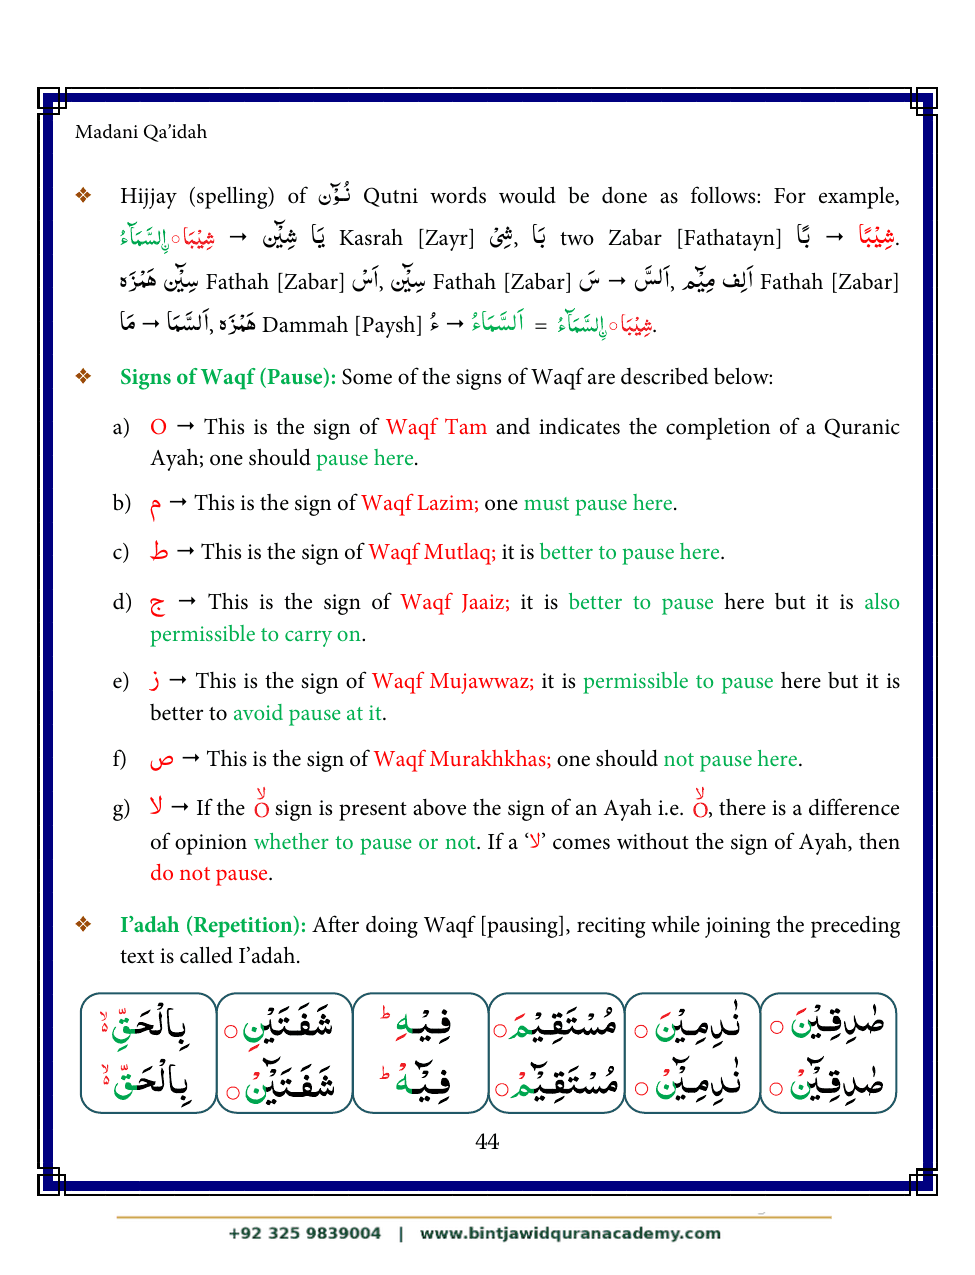 Madani Qa’idah
❖ Hijjay (spelling) of نُوْٓن Qutni words would be done as follows: For example,
شِيْبَا○نِۣالسَّمَآءُ → شِيْٓن يَا Kasrah [Zayr] شِىْ, بَا two Zabar [Fathatayn] بًا → شِيْبًا.
هَمْزَه سِيْٓن Fathah [Zabar] اَسْ, سِيْٓن Fathah [Zabar] سَ → اَلسَّ, مِيْٓم اَلِف Fathah [Zabar]
مَا → اَلسَّمَا, هَمْزَه Dammah [Paysh] ءُ → اَلسَّمَاءُ = شِيْبَا○نِۣالسَّمَآءُ.
❖ Signs of Waqf (Pause): Some of the signs of Waqf are described below:
a) O → This is the sign of Waqf Tam and indicates the completion of a Quranic
Ayah; one should pause here.
b) م → This is the sign of Waqf Lazim; one must pause here.
c) ط → This is the sign of Waqf Mutlaq; it is better to pause here.
d) ج → This is the sign of Waqf Jaaiz; it is better to pause here but it is also
permissible to carry on.
e) ز → This is the sign of Waqf Mujawwaz; it is permissible to pause here but it is
better to avoid pause at it.
f) ص → This is the sign of Waqf Murakhkhas; one should not pause here.
g) لا → If the Oۙ sign is present above the sign of an Ayah i.e. Oۙ, there is a difference
of opinion whether to pause or not. If a ‘لا’ comes without the sign of Ayah, then
do not pause.
❖ I’adah (Repetition): After doing Waqf [pausing], reciting while joining the preceding
text is called I’adah.
صٰدِقِيْنَ ○ نٰدِمِيْنَ ○ مُسْتَقِيْمَ ○ فِيْهِ ؕ شَفَتَيْنِ ○ بِالْحَقِّ ۙ۬
صٰدِقِيْٓنْ ○ نٰدِمِيْٓنْ ○ مُسْتَقِيْٓمْ ○ فِيْٓهْ ؕ شَفَتَيْٓنْ ○ بِالْحَقّْ ۙ۬
44
+92 325 9839004 | www.bintjawidquranacademy.com